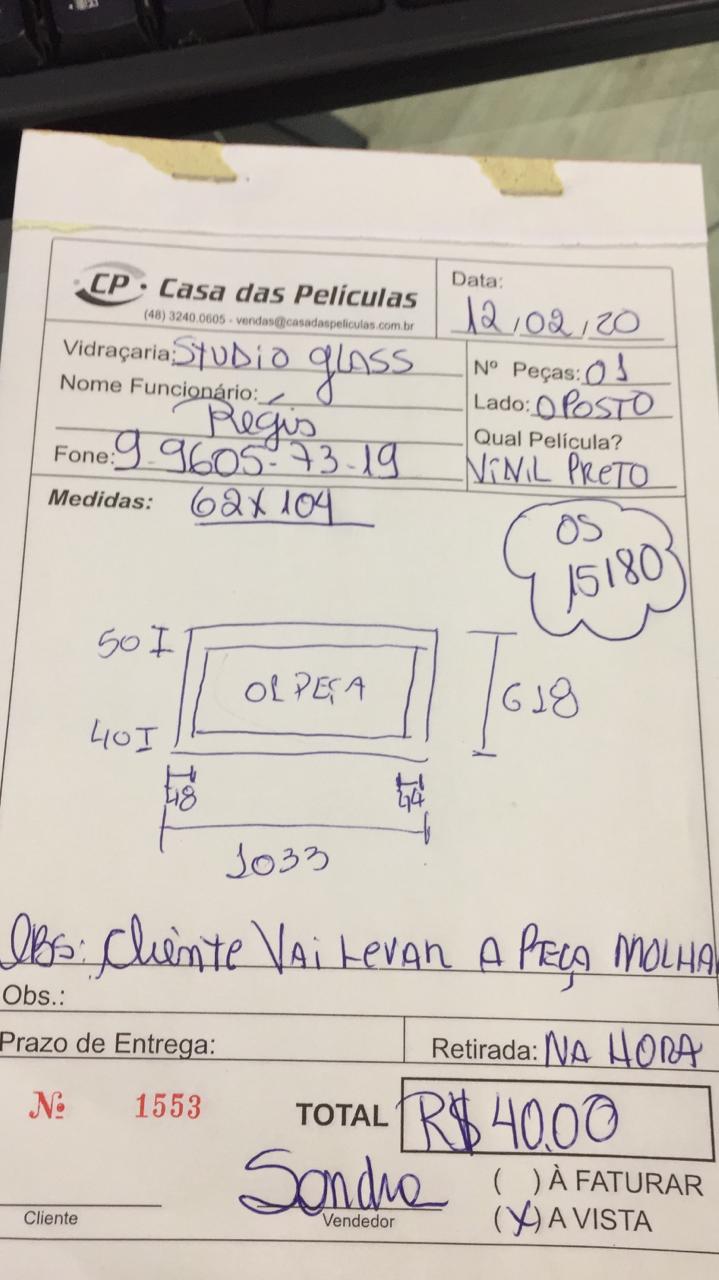 CP • Casa das Películas
(48) 3240.0605 - vendas@casadaspeliculas.com.br
Data:
12/02/20
Vidraçaria: STUDIO glASS
Nome Funcionário:
Régis
Fone: 9.9605-73-19
Nº Peças: 01
Lado: OPOSTO
Qual Película?
VINIL PRETO
Medidas: 62X104
OS
15180
50
01 PEÇA
618
40
48
44
1033
OBS: Cliente VAi Levar A PEÇA MOLHA
Obs.:
Prazo de Entrega:
Retirada: NA HORA
Nº 1553
TOTAL R$ 40,00
Sandra
Cliente
Vendedor
( ) À FATURAR
(X) A VISTA